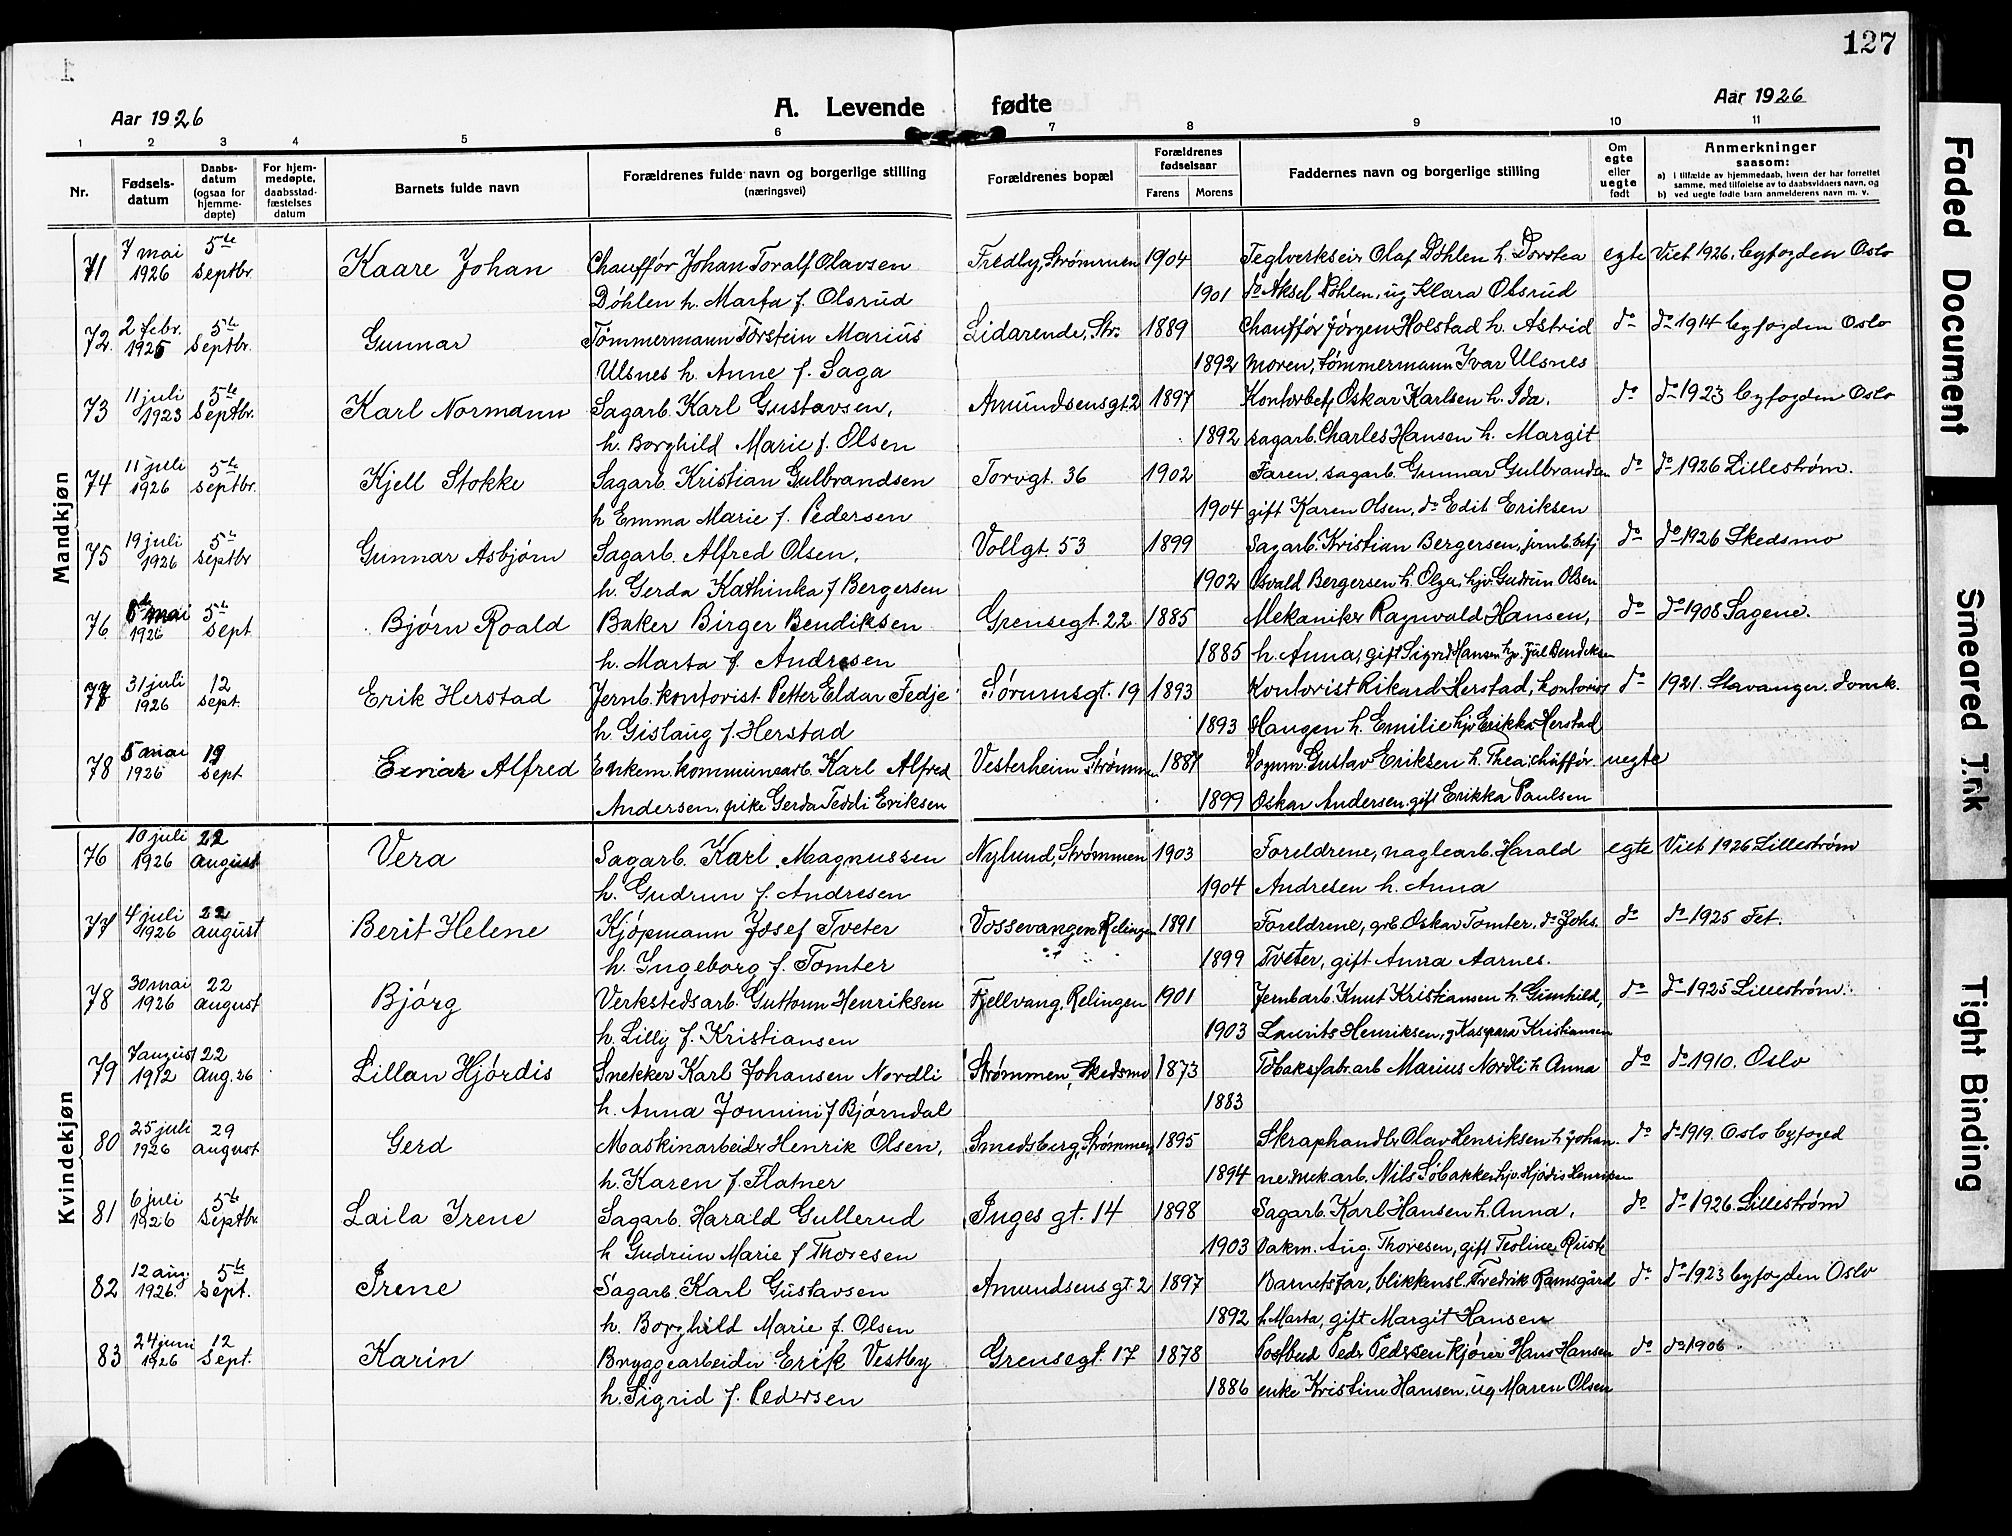 127
Aar 1926
A. Levende fødte
Aar 1926
1 2 3 4 5 6 7 8 9 10 11
Nr.
Fødsels-datum
Daabs-datum (ogsaa for hjemme-døpte)
For hjem-medøpte, daabsstad-fæstelses datum
Barnets fulde navn
Forældrenes fulde navn og borgerlige stilling (næringsvei)
Forældrenes bopæl
Forældrenes fødselsaar
Farens Morens
Faddernes navn og borgerlige stilling
Om egte eller uegte født
Anmerkninger saasom:
a) i tilfælde av hjemmedaab, hvem der har forrettet samme, med tilføielse av to daabsvidners navn, og
b) ved uegte fødte barn anmelderens navn m. v.
Mandkjøn
71 7 mai 1926 5te Septbr Kaare Johan Chauffør Johan Toralf Olavsen Fredly, Strømmen 1904 Teglverkseier Olaf Døhlen h. Dorotea egte Viet 1926. byfogden Oslo
Døhlen h. Marta f. Olsrud 1901 do Aksel Døhlen, ug Klara Olsrud
72 2 febr. 1925 5te Septbr. Gunnar Tømmermann Torstein Marius Lidarende, Str: 1889 Chauffør Jørgen Holstad h. Astrid do do 1914 byfogden Oslo
Ulsnes h. Anne f. Saga 1892 moren, tømmermann Ivar Ulsnes
73 11 juli 1923 5te Septbr. Karl Normann Sagarb. Karl Gustavsen, Amundsensgt. 2 1897 Kontorbetj Oskar Karlsen h. Ida. do do 1923 byfogden Oslo
h. Borghild Marie f. Olsen 1892 sagarb. Charles Hansen h. Margit
74 11 juli 1926 5te Septbr. Kjell Stokke Sagarb. Kristian Gulbrandsen Torvgt. 36 1902 Faren, sagarb. Gunnar Gulbrandsen do do 1926 Lillestrøm.
h Emma Marie f. Pedersen 1904 gift Karen Olsen, do Edit Eriksen
75 19 juli 1926 5te Septbr Gunnar Asbjørn Sagarb. Alfred Olsen, Vollgt. 53 1899 Sagarb. Kristian Bergersen, jernb.betj do do 1926 Skedsmo
h. Gerda Kathinka f Bergersen 1902 Osvald Bergersen h. Olga, hjv. Gudrun Olsen
76 mai 1926 5te Sept Bjørn Roald Baker Birger Bendiksen Grensegt. 22 1885 Mekaniker Ragnvald Hansen, do do 1908 Sagene.
h. Marta f. Andresen 1885 h. Anna, gift Sigrid Hansen hjv. Jul Bendiksen
77 31 juli 1926 12 Sept. Erik Herstad Jernb. kontorist Petter Eldar Tedje Sørumsgt. 19 1893 Kontorist Rikard Herstad, kontorist do 1921. Stavanger. domk.
h. Gislaug f. Herstad 1893 Haugen h. Emilie hjv Erikka Herstad
78 5 mai 1926 19 Sept Einar Alfred Enkem. kommunearb. Karl Alfred Vesterheim Strømmen 1887 Vognm. Gustav Eriksen h. Thea, chaffør. uegte
Andersen, pike Gerda Teddi Eriksen 1899 Oskar Andersen gift Erikka Paulsen
Kvindekjøn
76 10 juli 1926 22 August Vera Sagarb. Karl Magnussen Nylund, Strømmen 1903 Foreldrene, naglearb. Harald egte Viet 1926 Lillestrøm
h. Gudrun f. Andresen 1904 Andresen h. Anna
77 4 juli 1926 22 August Berit Helene Kjøpmann Josef Tveter Vossevangen Relingen 1891 Foreldrene, grb. Oskar Tomter, do Johs. do do 1925 Fet.
h. Ingeborg f. Tomter 1899 Tveter, gift Anna Aarnes.
78 30 mai 1926 22 August Bjørg Verkstedsarb. Guttorm Henriksen Fjellvang, Relingen 1901 Jernbarb. Knut Kristiansen h. Gunhild, do do 1925 Lillestrøm.
h. Lilly f. Kristiansen 1903 Laurits Henriksen, g Kaspara Kristiansen
79 7 august 1912 22 Aug. 26 Lillan Hjørdis Snekker Karl Johansen Nordli Strømmen, Skedsmo 1873 Tobaksfabr.arb Marius Nordli h Anna do do 1910. Oslo
h. Anna Jonnine f Bjørndal 1883
80 25 juli 1926 29 August Gerd Maskinarbeider Henrik Olsen, Smedsberg, Strømmen 1895 Skraphandler Olav Henriksen h Johan- do do 1919. Oslo byfoged
h. Karen f. Flatner 1894 ne, mek arb. Nils Søbakken hjv. Hjørdis Henriksen
81 6 juli 1926 5te Septbr. Laila Irene Sagarb. Harald Gullerud Inges gt. 14 1898 Sagarb. Karl Hansen h. Anna, do do 1926. Lillestrøm
h Gudrun Marie f Thoresen 1903 Vakm. Aug. Thoresen, gift Teoline Rusk
82 12 aug. 1926. 5te Sept. Irene Sagarb. Karl Gustavsen Amundsens gt. 2 1897 Barnetsfar, blikkensl. Fredrik Ramsgård do do 1923 byfogden Oslo
h. Borghild Marie f. Olsen 1892 h. Marta, gift Margit Hansen
83 24 juni 1926 12 Sept. Karin Bryggearbeider Erik Vestby Grensegt. 17 1878 Postbud Peder Pedersen kjører Hans Hansen do do 1906
h. Sigrid f. Pedersen 1886 enke Kristine Hansen, ug Maren Olsen
Faded Document
Smeared Ink
Tight Binding